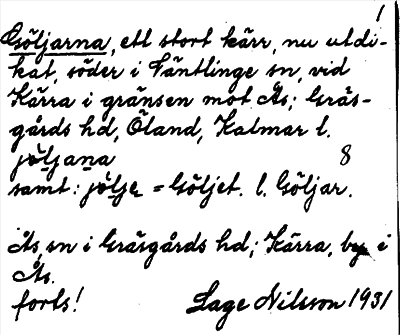 1
Göljarna, ett stort kärr, nu utdi-
kat, söder i Ventlinge sn, vid
Kärra i gränsen mot Ås; Gräs-
gårds hd, Öland, Kalmar l.
jöljana 8
samt: jölje = Göljet. l. Göljar.
Ås, sn i Gräsgårds hd; Kärra, by i
Ås.
forts! Lage Nilsson 1931